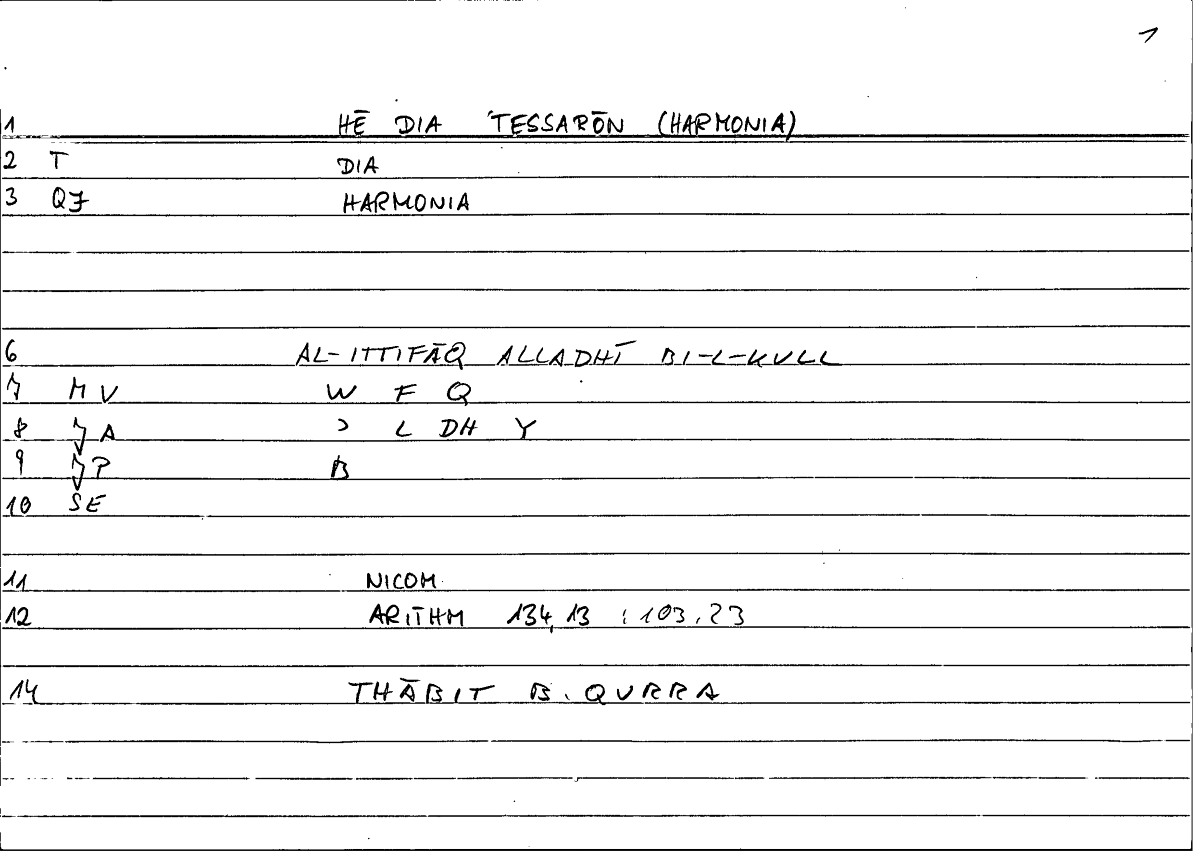 1
1 HĒ DIA TESSARŌN (HARMONIA)
2 T DIA
3 QJ HARMONIA
6 AL-ITTIFĀQ ALLADHĪ BI-L-KULL
7 MV W F Q
8 A ɔ L DH Y
9 P B
10 SE
11 NICOM
12 ARITHM 134,13 : 103,23
14 THĀBIT B. QURRA